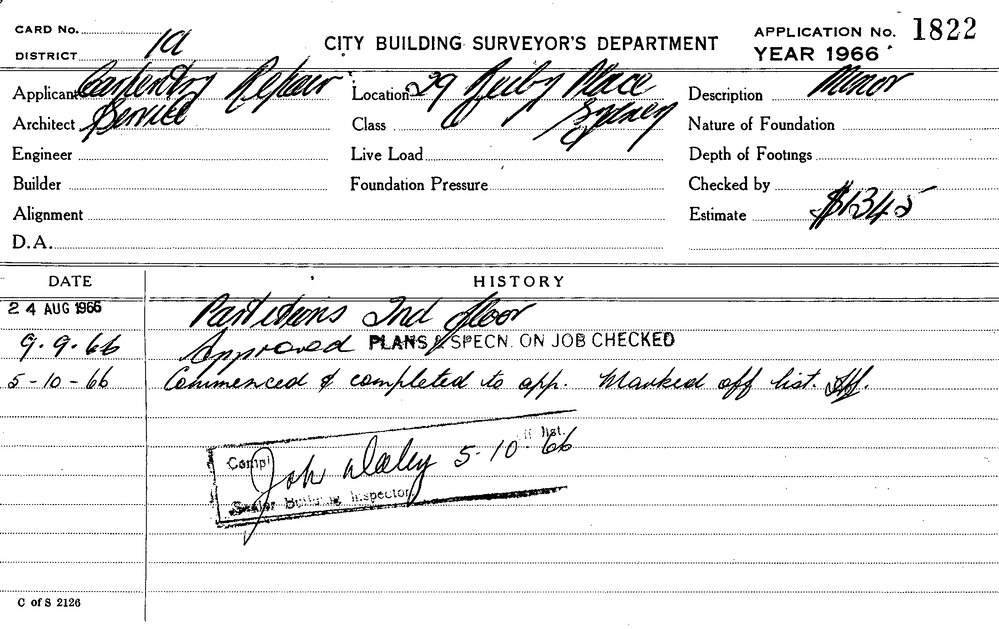 CARD No.
DISTRICT 1a
CITY BUILDING SURVEYOR'S DEPARTMENT
APPLICATION No. 1822
YEAR 1966
Applicant Carpentry Repair
Location 29 Reiby Place
Description Minor
Architect Service
Class Sydney
Nature of Foundation
Engineer
Live Load
Depth of Footings
Builder
Foundation Pressure
Checked by
Alignment
Estimate $1345
D.A.
DATE HISTORY
24 AUG 1966 Partitions 2nd floor
9.9.66 Approved PLANS & SPECN. ON JOB CHECKED
5-10-66 Commenced & completed to app. Marked off list.
list.
Compl
Joh Daley 5-10-66
Senior Building Inspector
C of S 2126